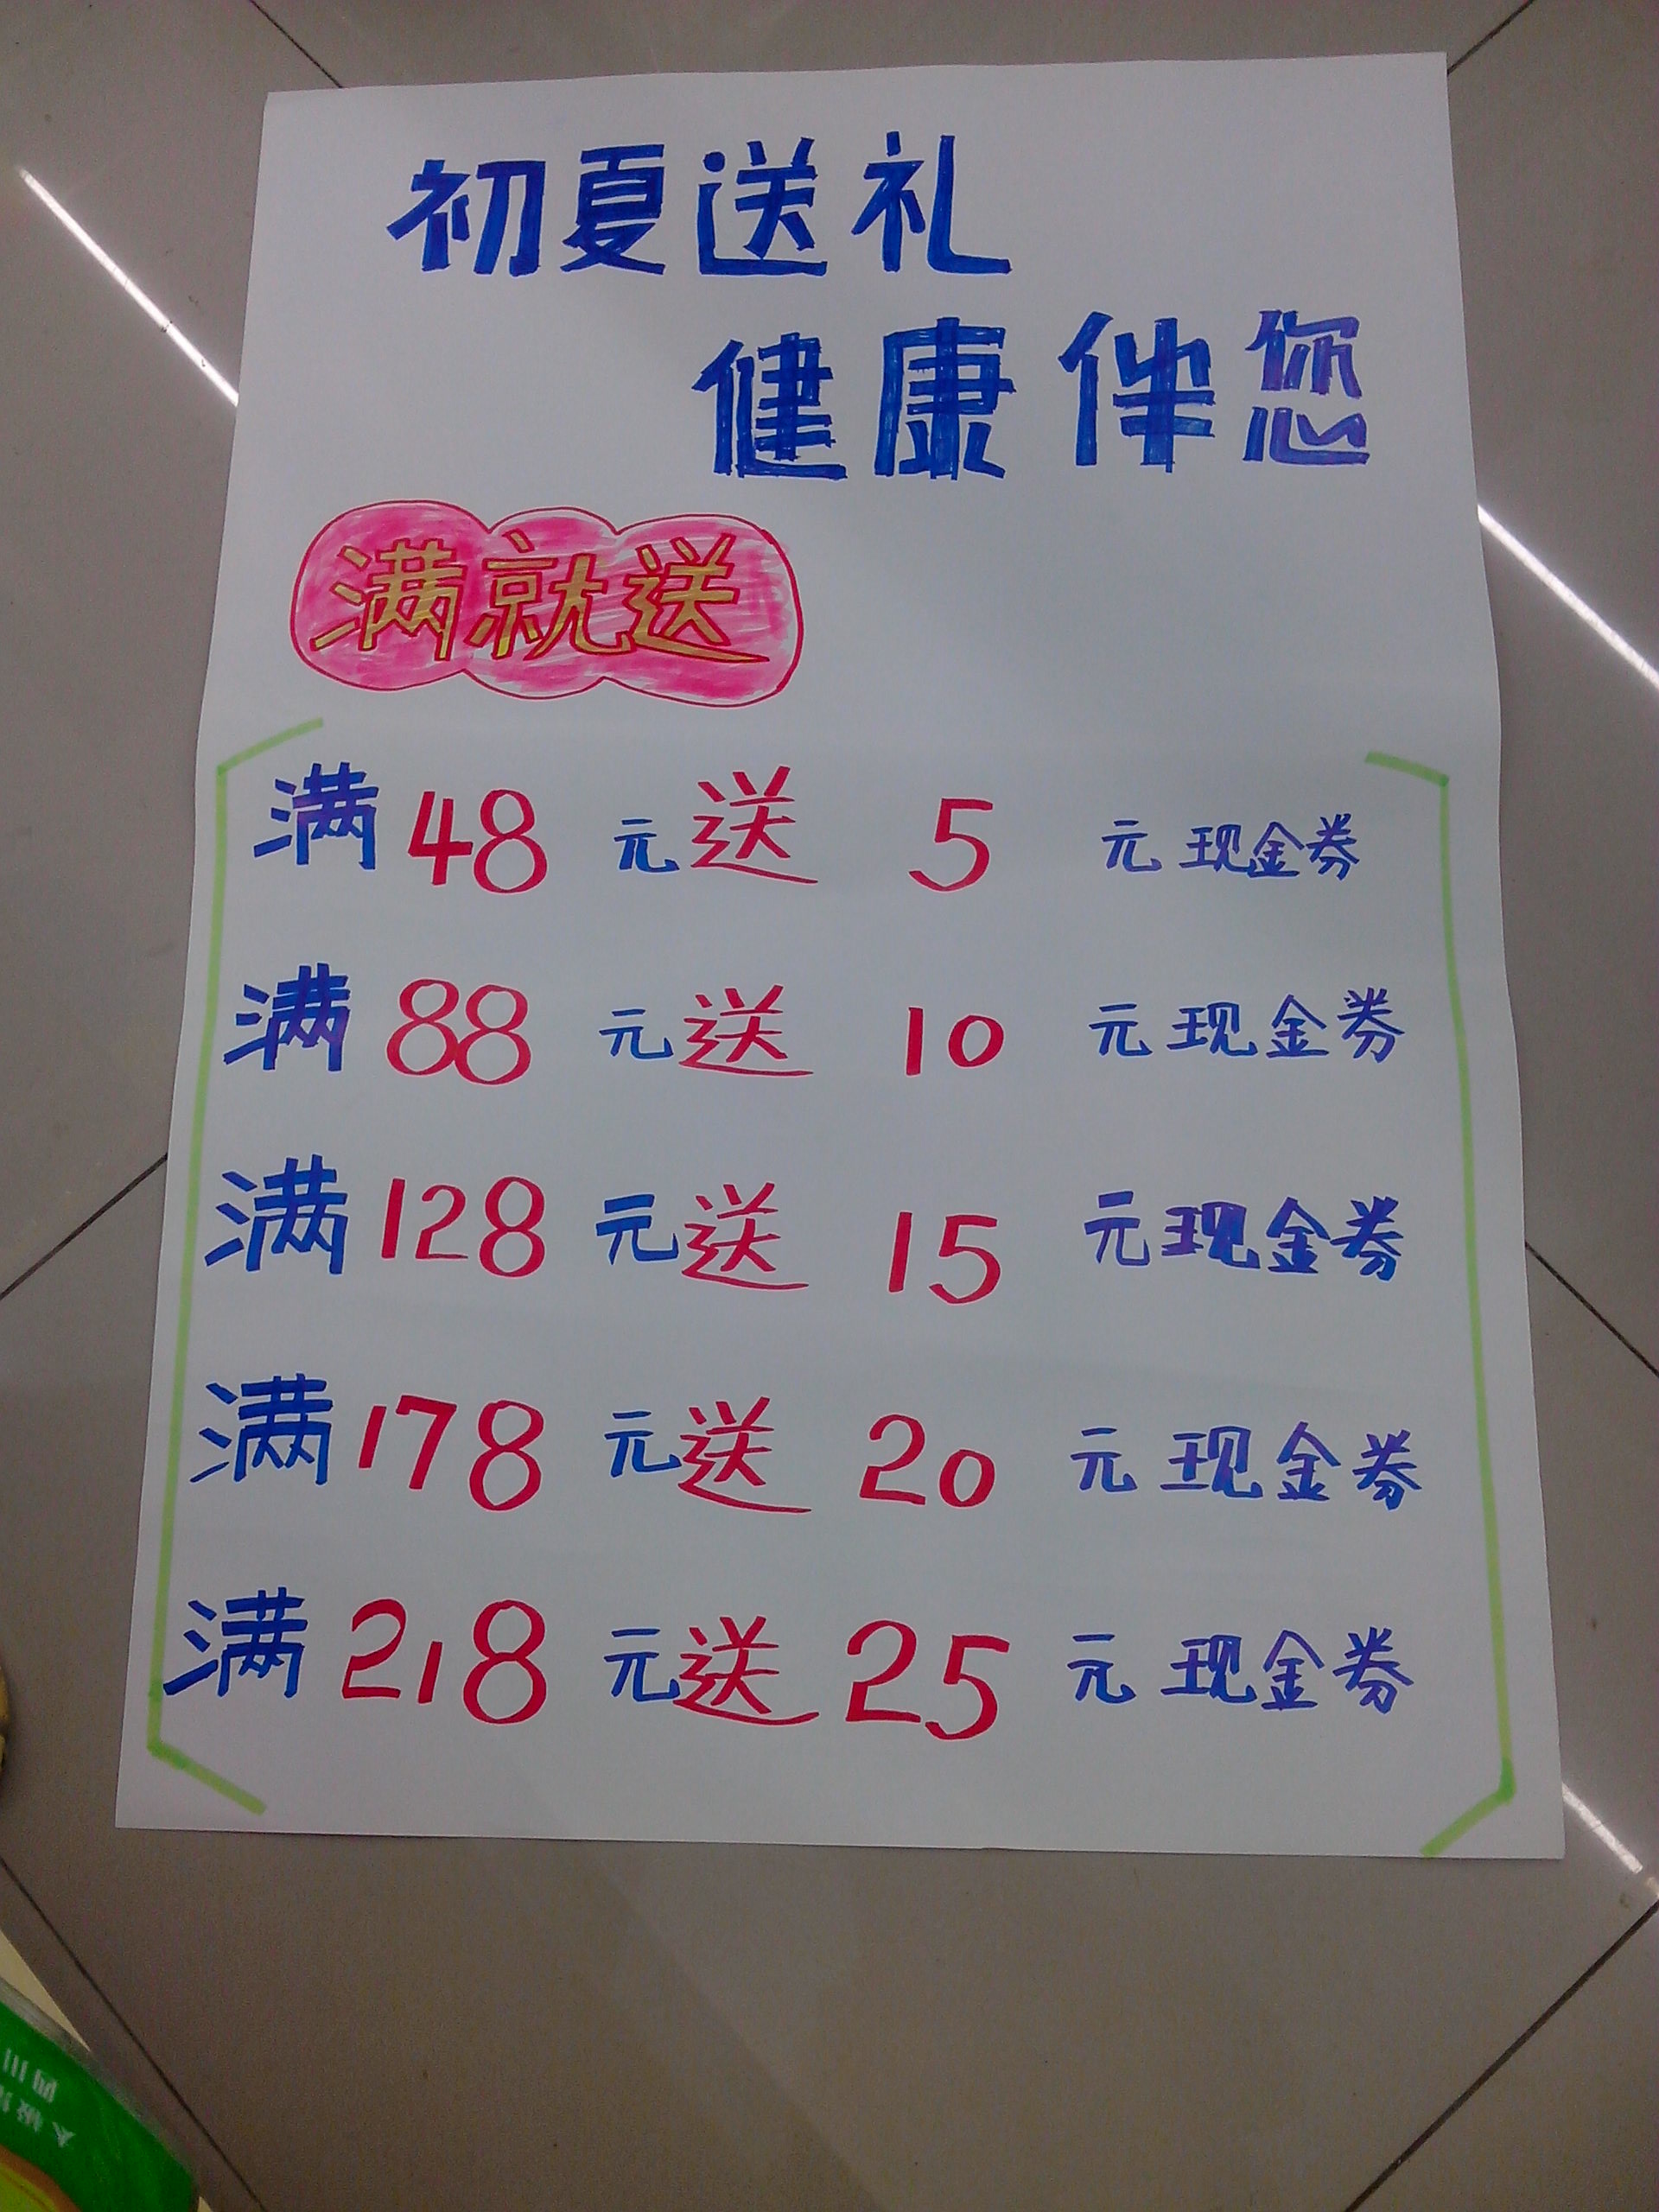 初夏送礼
健康伴您
满就送
满48元送5元现金券
满88元送10元现金券
满128元送15元现金券
满178元送20元现金券
满218元送25元现金券